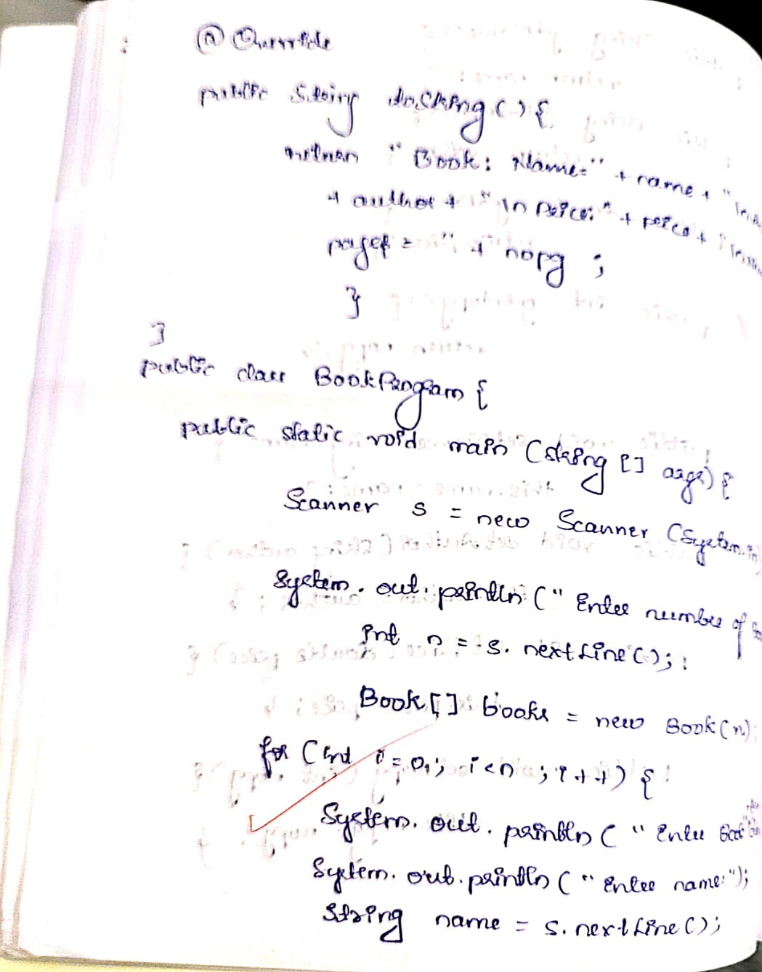 @ Override
public String toString() {
return " Book: Name=" + name + "
+ author + " \n Price: " + price + "
pages = " + nopg ;
}
}
public class BookProgram {
public static void main (String [] args) {
Scanner s = new Scanner (System.in
System.out.println (" Enter number of
int n = s.nextLine();
Book[] books = new Book(n);
for (int i=0; i<n ; i++) {
System.out.println (" Enter Book
System.out.println (" Enter name:");
String name = s.nextLine();